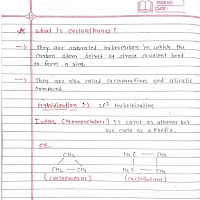 PAGE NO.
DATE:
* What is cycloalkanes?
→ They are saturated hydrocarbon in which the
carbon atom joined by single covalent bond
to form a ring.
→ They are also called cycloparaffins and alicyclic
compound.
Hybridization :- sp3 Hybridization
IUPAC (Nomenclature) :- name as alkanes but
use cyclo as a Prefix.
CH2
CH2 — CH2
(Cyclopropane)
H2C — CH2
H2C — CH2
(Cyclobutane)